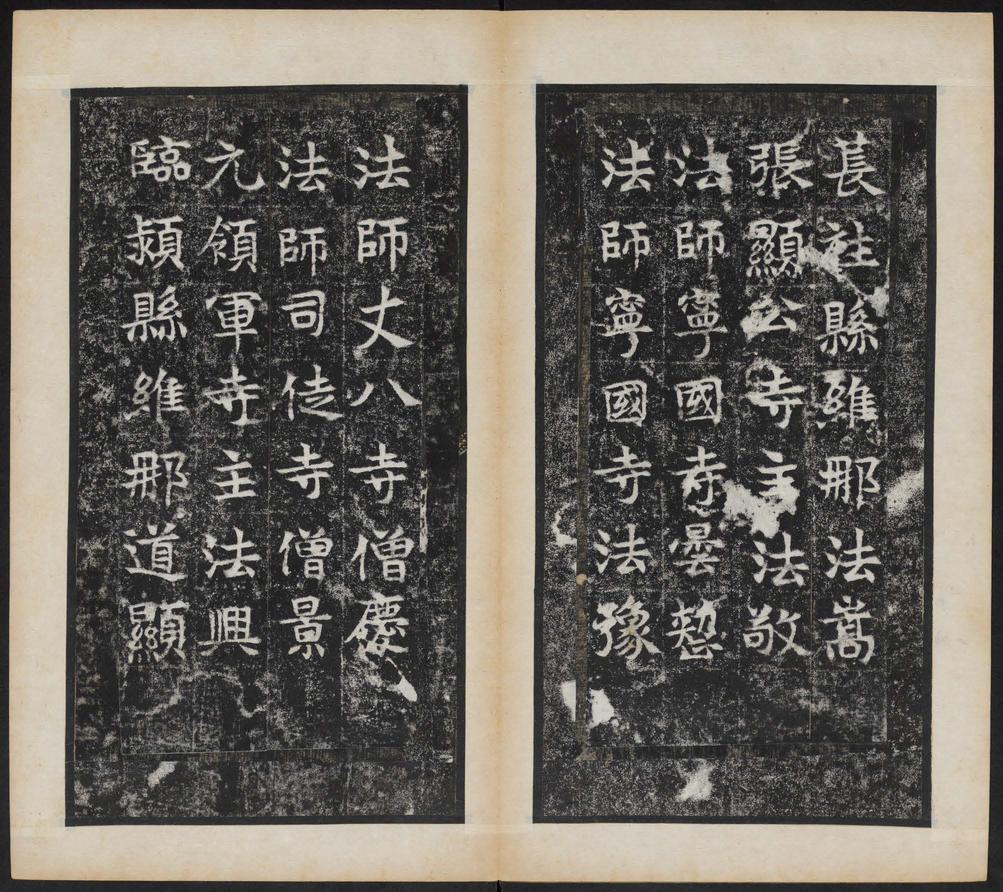 長社縣維那法嵩
張顯公寺主法敬
法師寧國寺曇
法師寧國寺法豫
法師丈八寺僧慶
法師司徒寺僧景
元領軍寺主法興
臨潁縣維那道顯